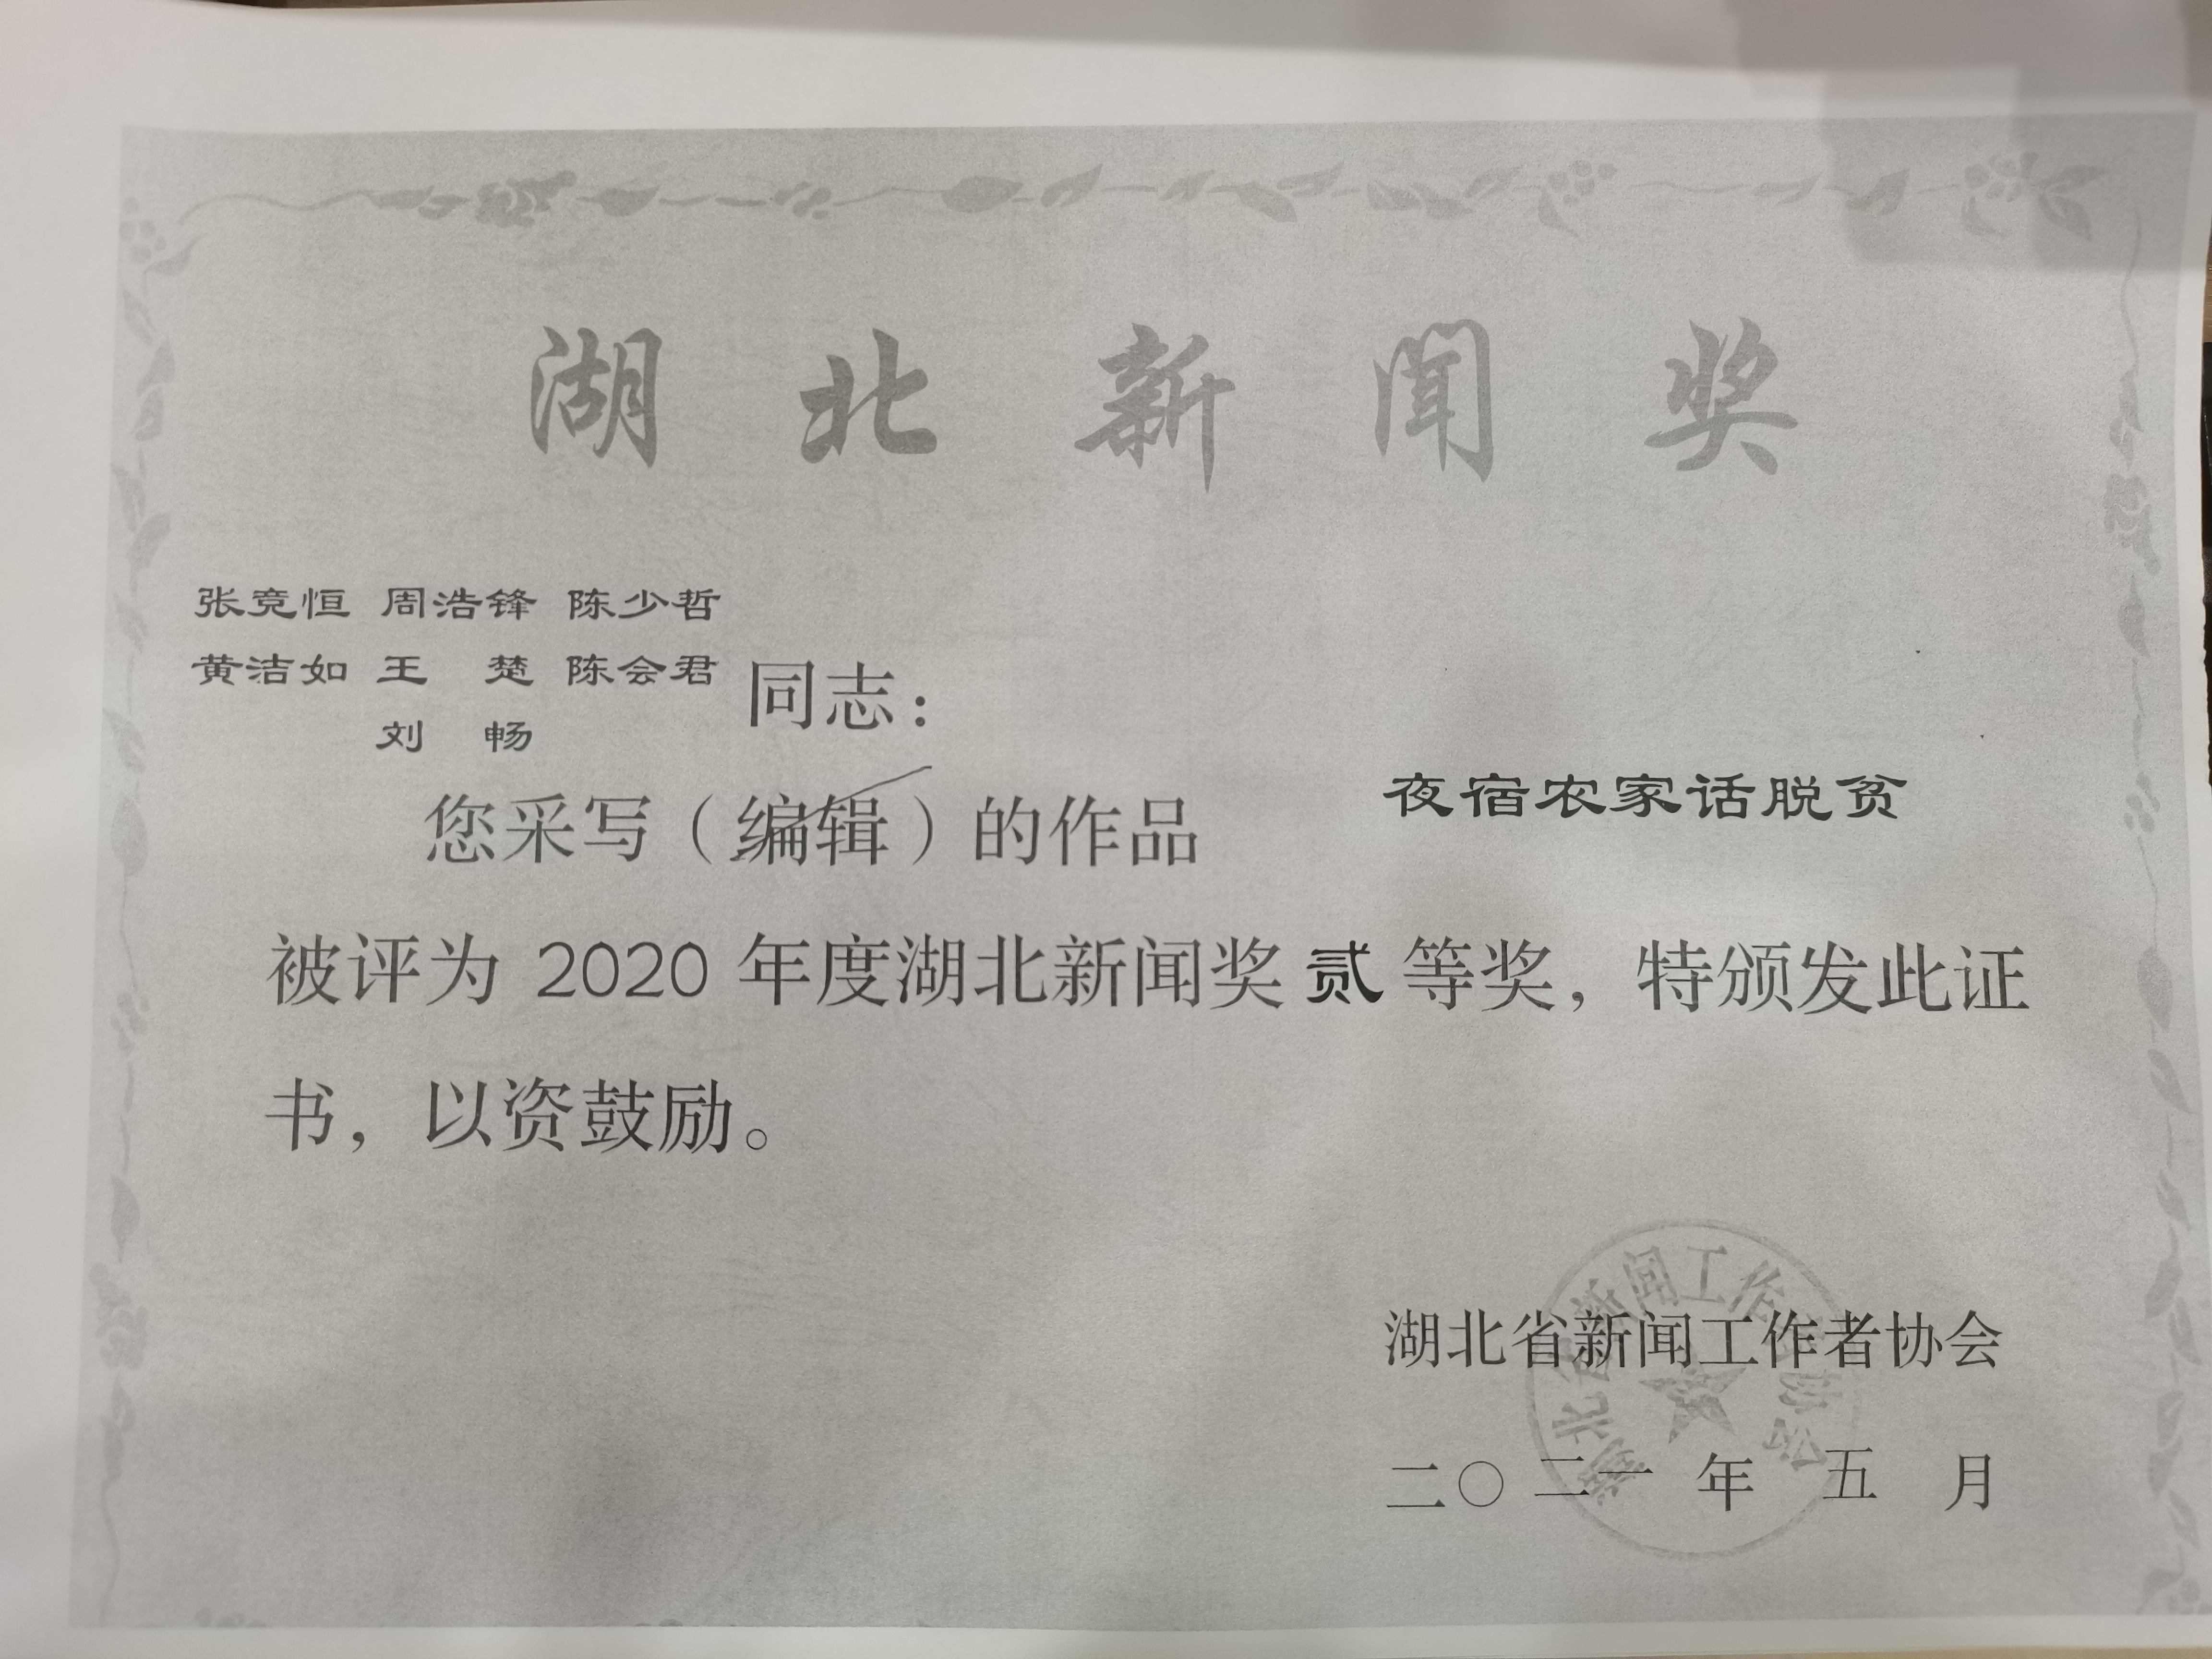 湖北新闻奖
张竞恒 周浩锋 陈少哲
黄洁如 王 楚 陈会君
刘 畅
同志：
您采写（编辑）的作品 夜宿农家话脱贫
被评为 2020 年度湖北新闻奖 贰 等奖，特颁发此证
书，以资鼓励。
湖北省新闻工作者协会
二〇二一 年 五 月
湖北省新闻工作者协会